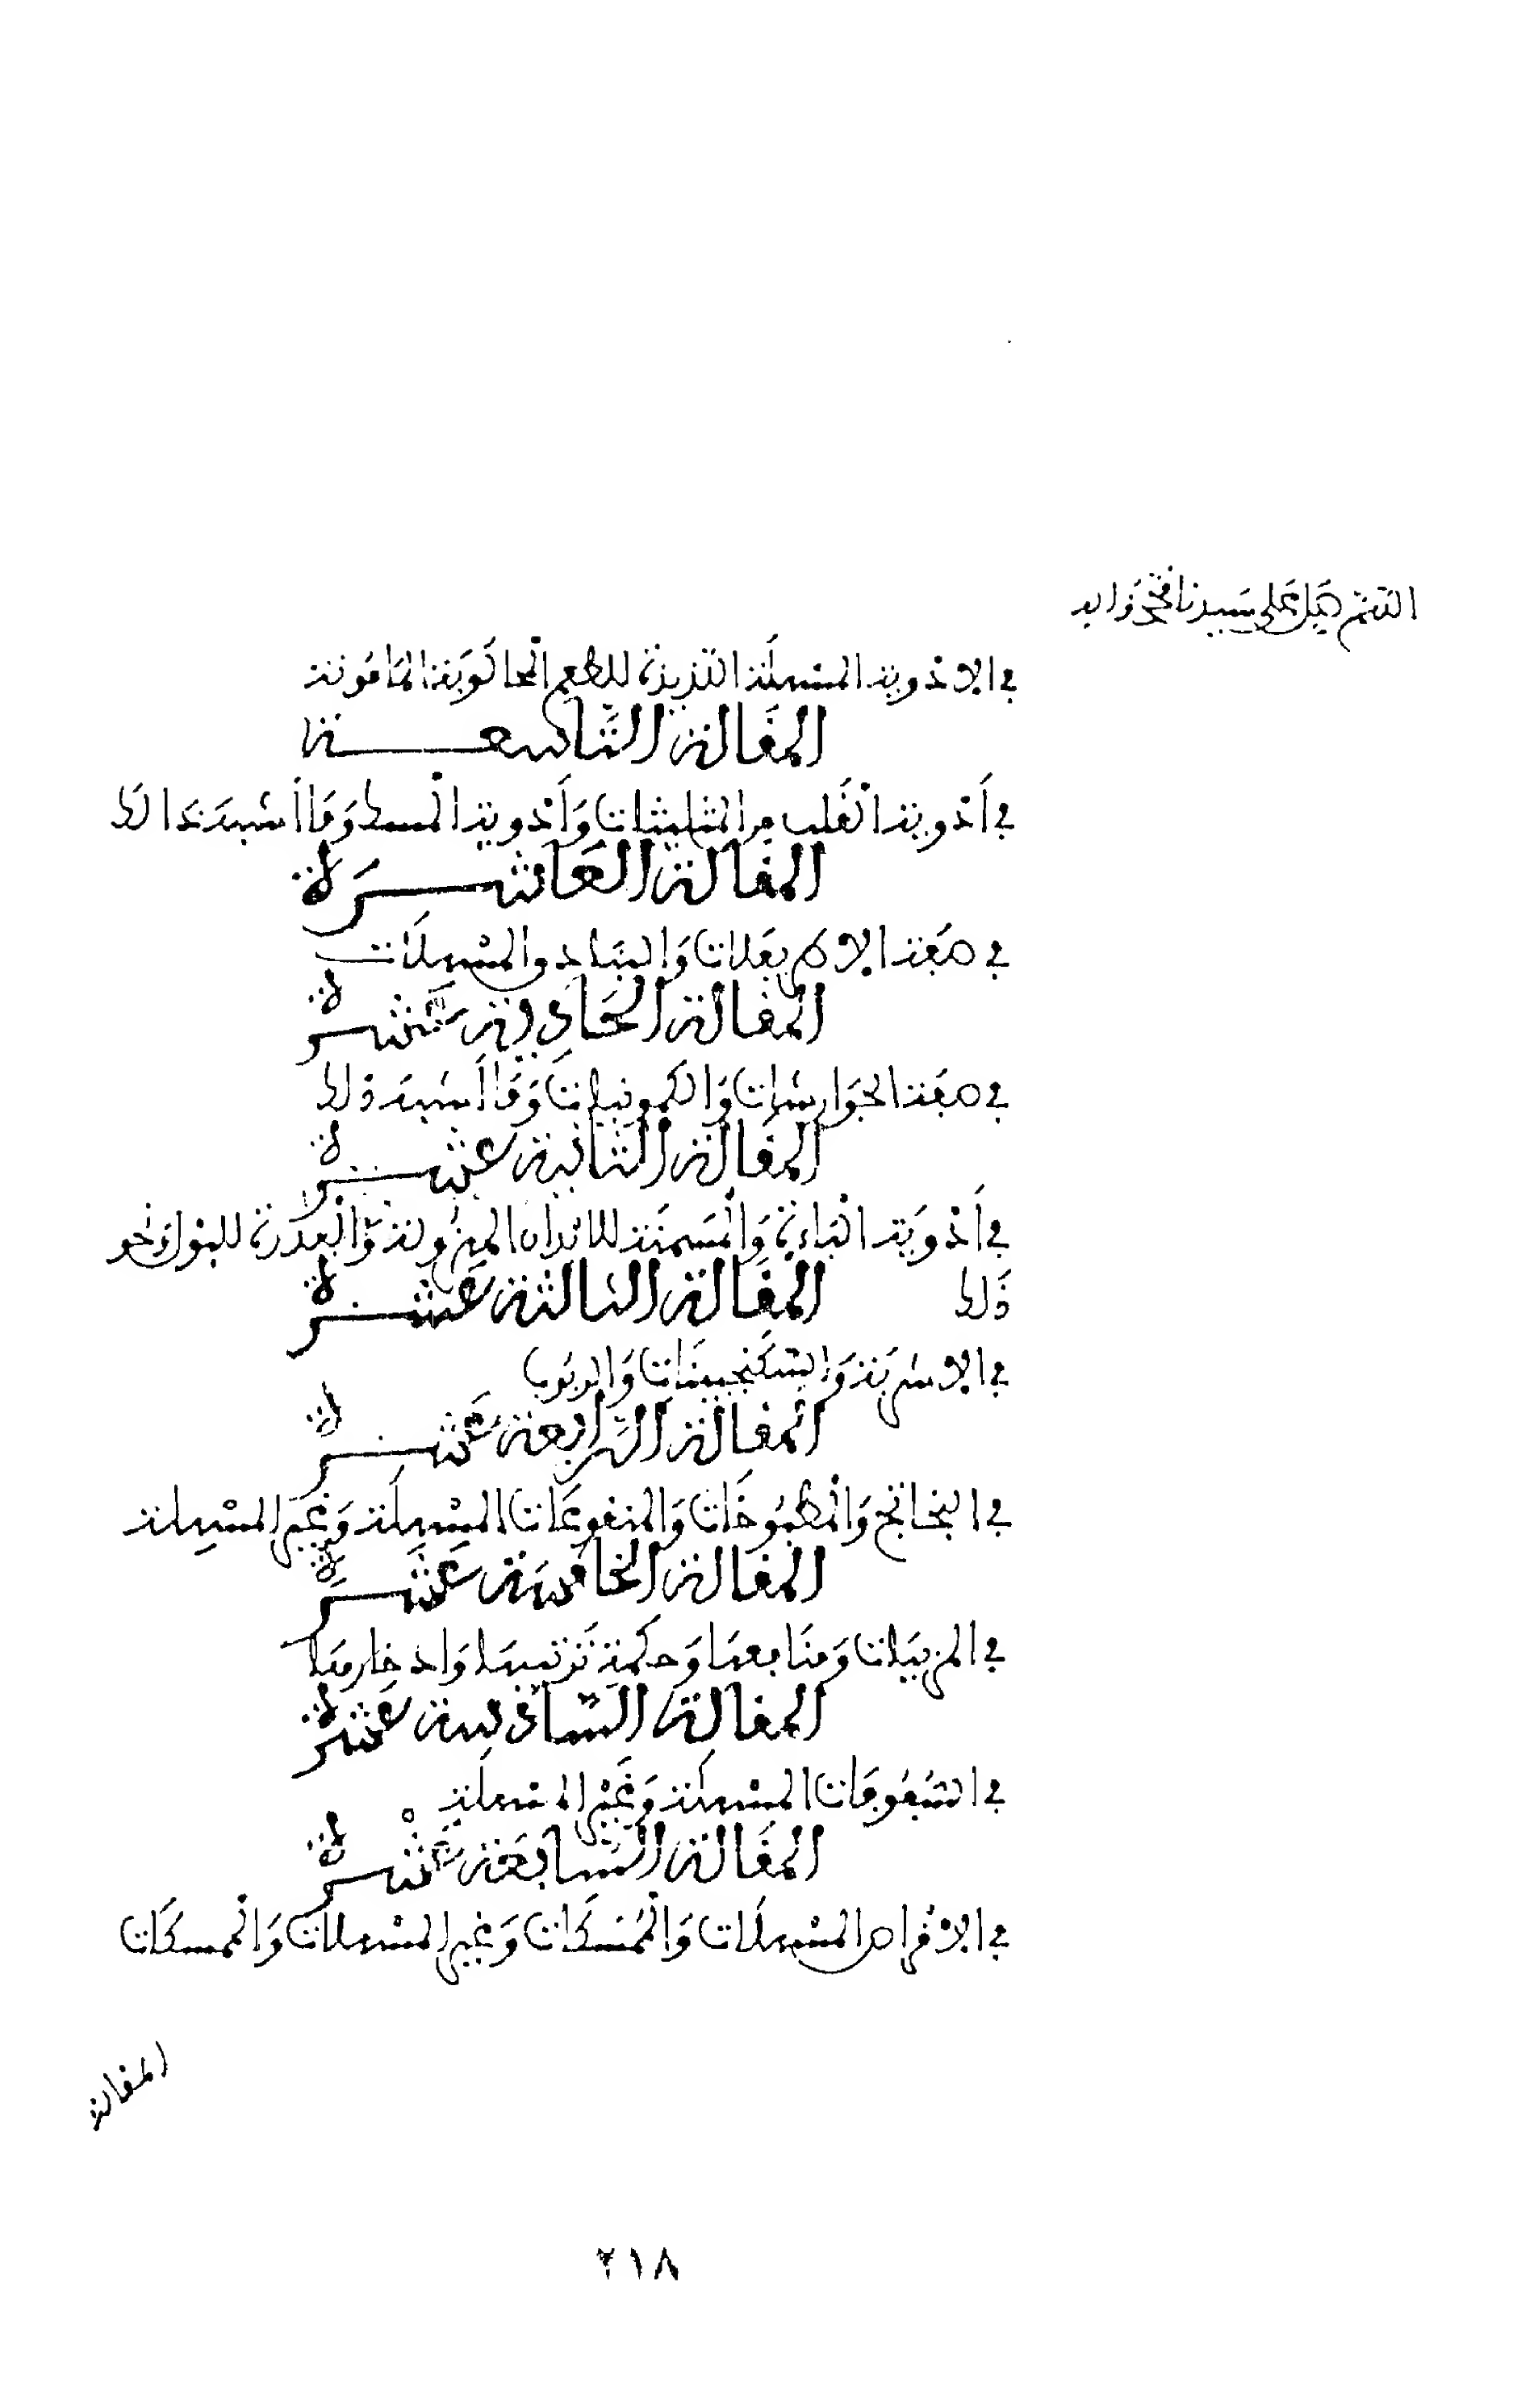 اللهم صل على سيدنا محمد واله
في الادوية المسهلة اللذيذة للطعم الحلوية المامونة
المقالة التاسعــــة
في أدوية القلب من وأدوية المسك وما أشبه ذلك
المقالة العاشــــرة
في صفة الاطريفلات والبنادق المسهلات
المقالة الحادية عشرة
في صفة الجوارشات والكمونيات وما أشبه ذلك
المقالة الثانية عشــرة
في أدوية الباءة والمسمنة للابدان المهزولة والمدرة للبول ونحو
ذلك
المقالة الثالثة عشرة
في الاشربة والسكنجبينات والربوب
المقالة الرابعة عشــرة
في البخاتج والمطبوخات والمنقوعات المسهلة وغير المسهلة
المقالة الخامسة عشــرة
في المربيات ومنافعها وحكمة تربيبها وادخارها
المقالة السادسة عشرة
في السفوفات المسهلة وغير المسهلة
المقالة السابعة عشرة
في الاقراص المسهلات والممسكات وغير المسهلات والممسكات
المقالة
٢١٨